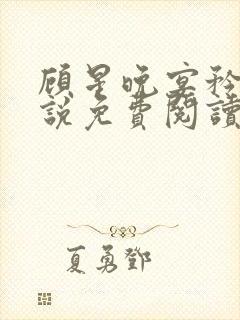 顾星晚宴矜
說免費閱讀
夏勇鄧